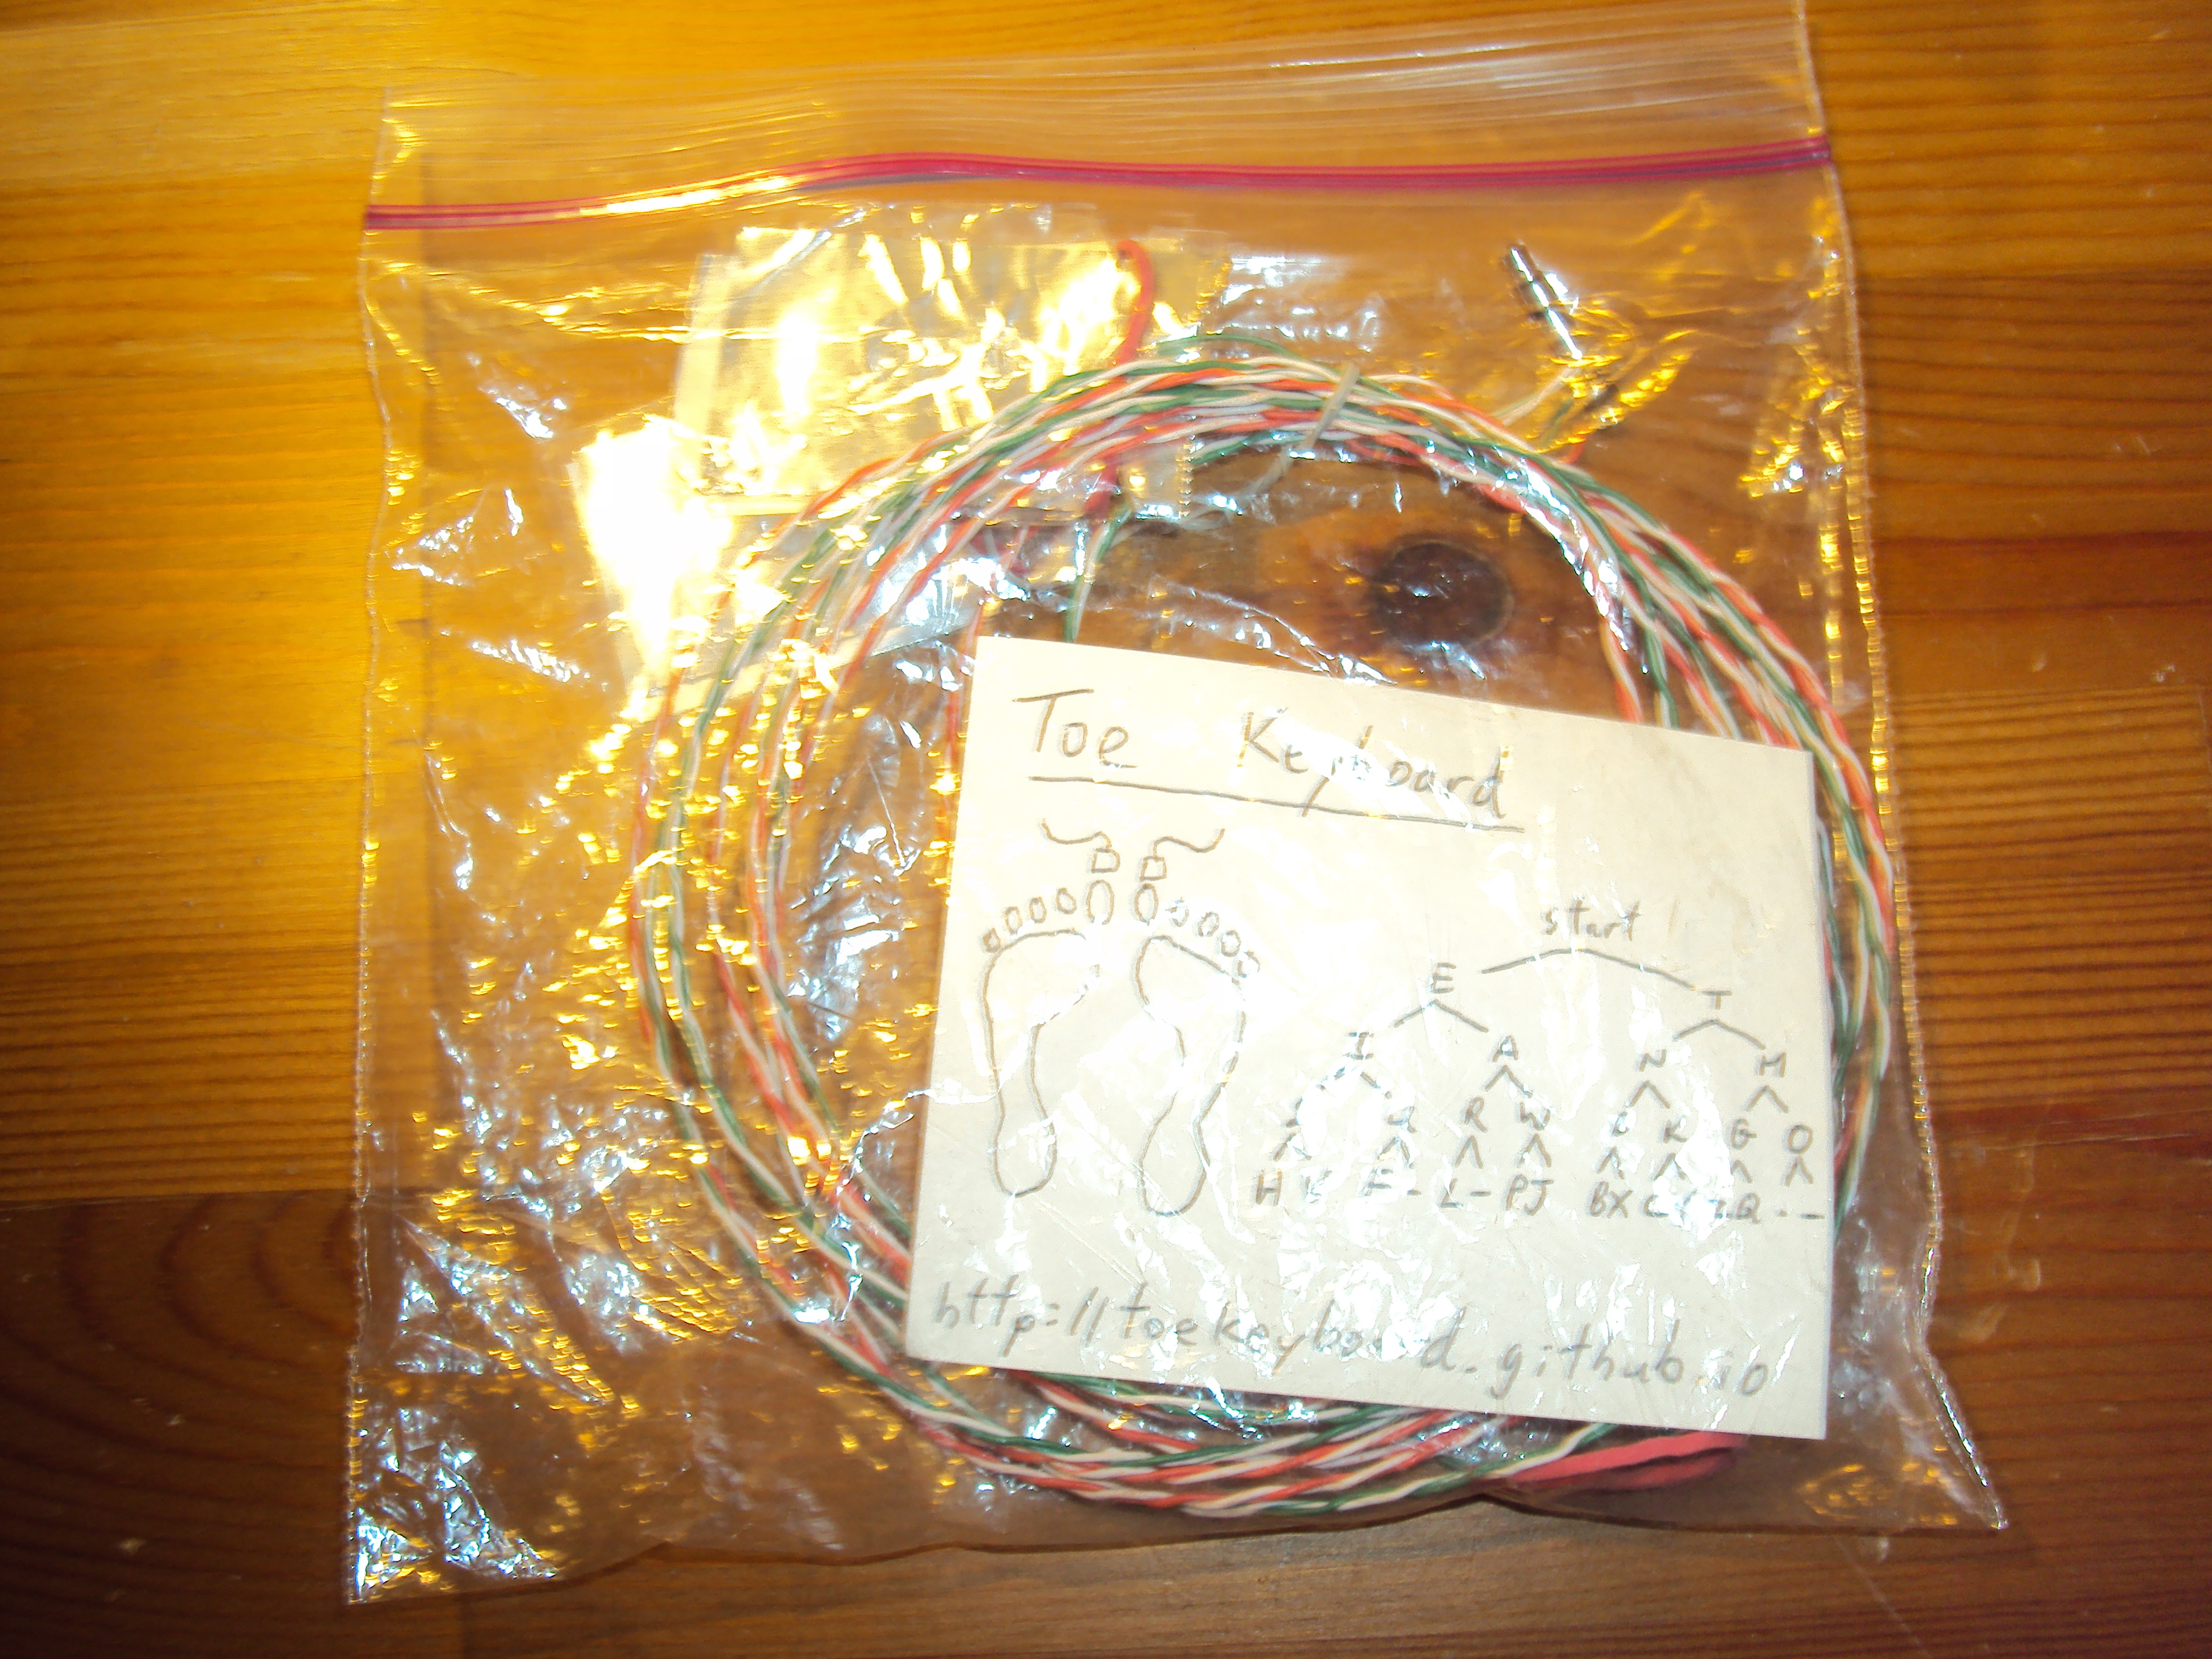 Toe Keyboard
start
E T
I A N M
R W K G O
H V F - L - PJ BX C Q - -
http://toekeyboard.github.io